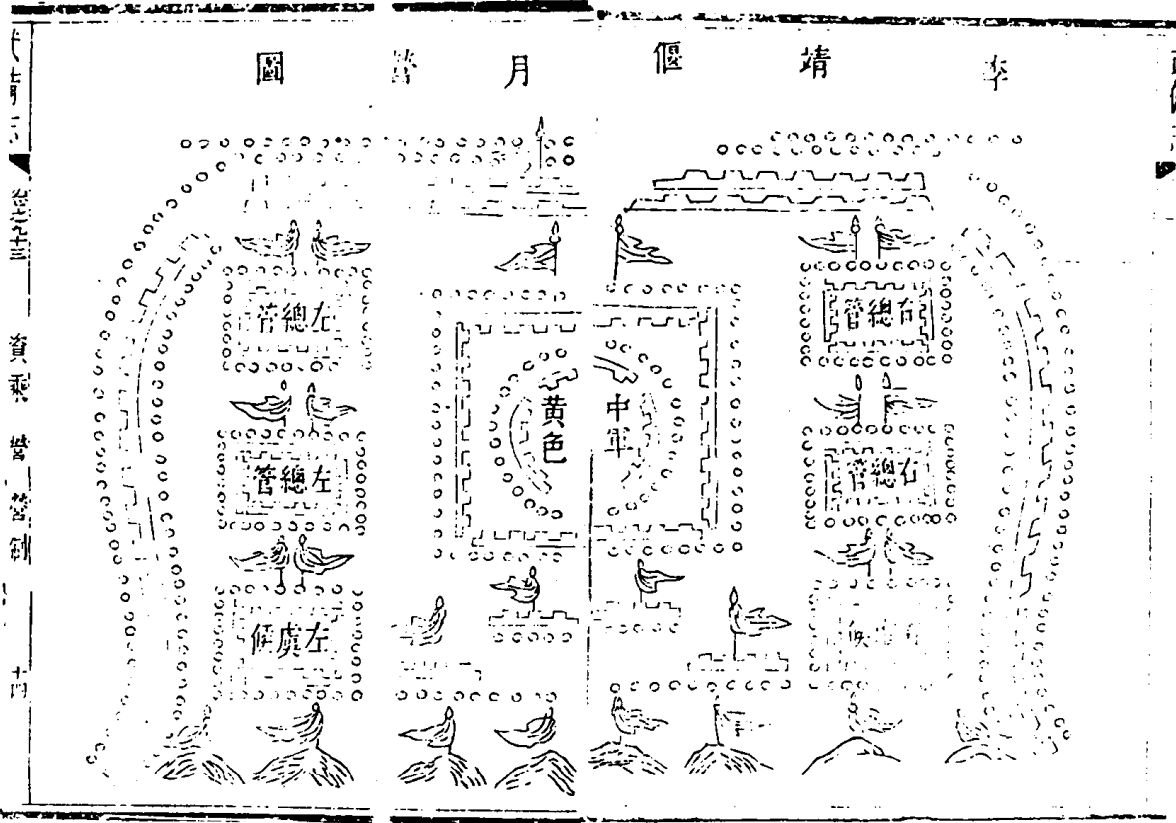 李靖偃月營圖
右總管
右總管
右虞候
中軍
黃色
左總管
左總管
左虞候
武備志
卷之九十三
資乘
營
營制
十四